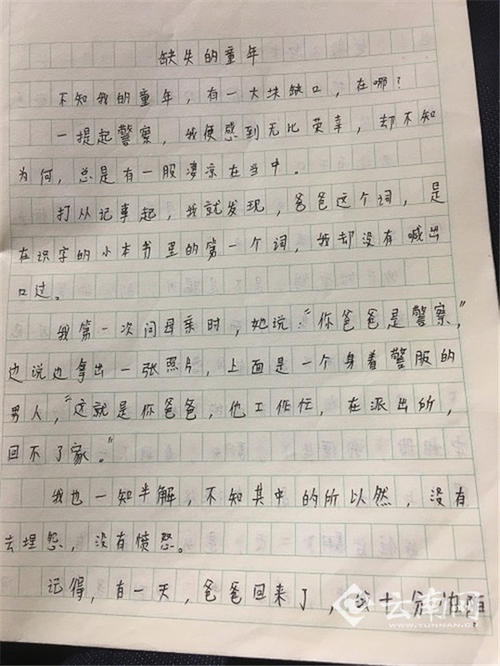 缺失的童年
不知我的童年，有一大块缺口，在哪？
一提起警察，我便感到无比荣幸，却不知
为何，总是有一股凄凉在当中。
打从记事起，我就发现，爸爸这个词，是
在识字的小本书里的第一个词，我却没有喊出
口过。
我第一次问母亲时，她说："你爸爸是警察，"
边说边拿出一张照片，上面是一个身着警服的
男人，"这就是你爸爸，他工作忙，在派出所，
回不了家。"
我也一知半解，不知其中的所以然，没有
去埋怨，没有愤怒。
记得，有一天，爸爸回来了，
云南网
WWW.YUNNAN.CN